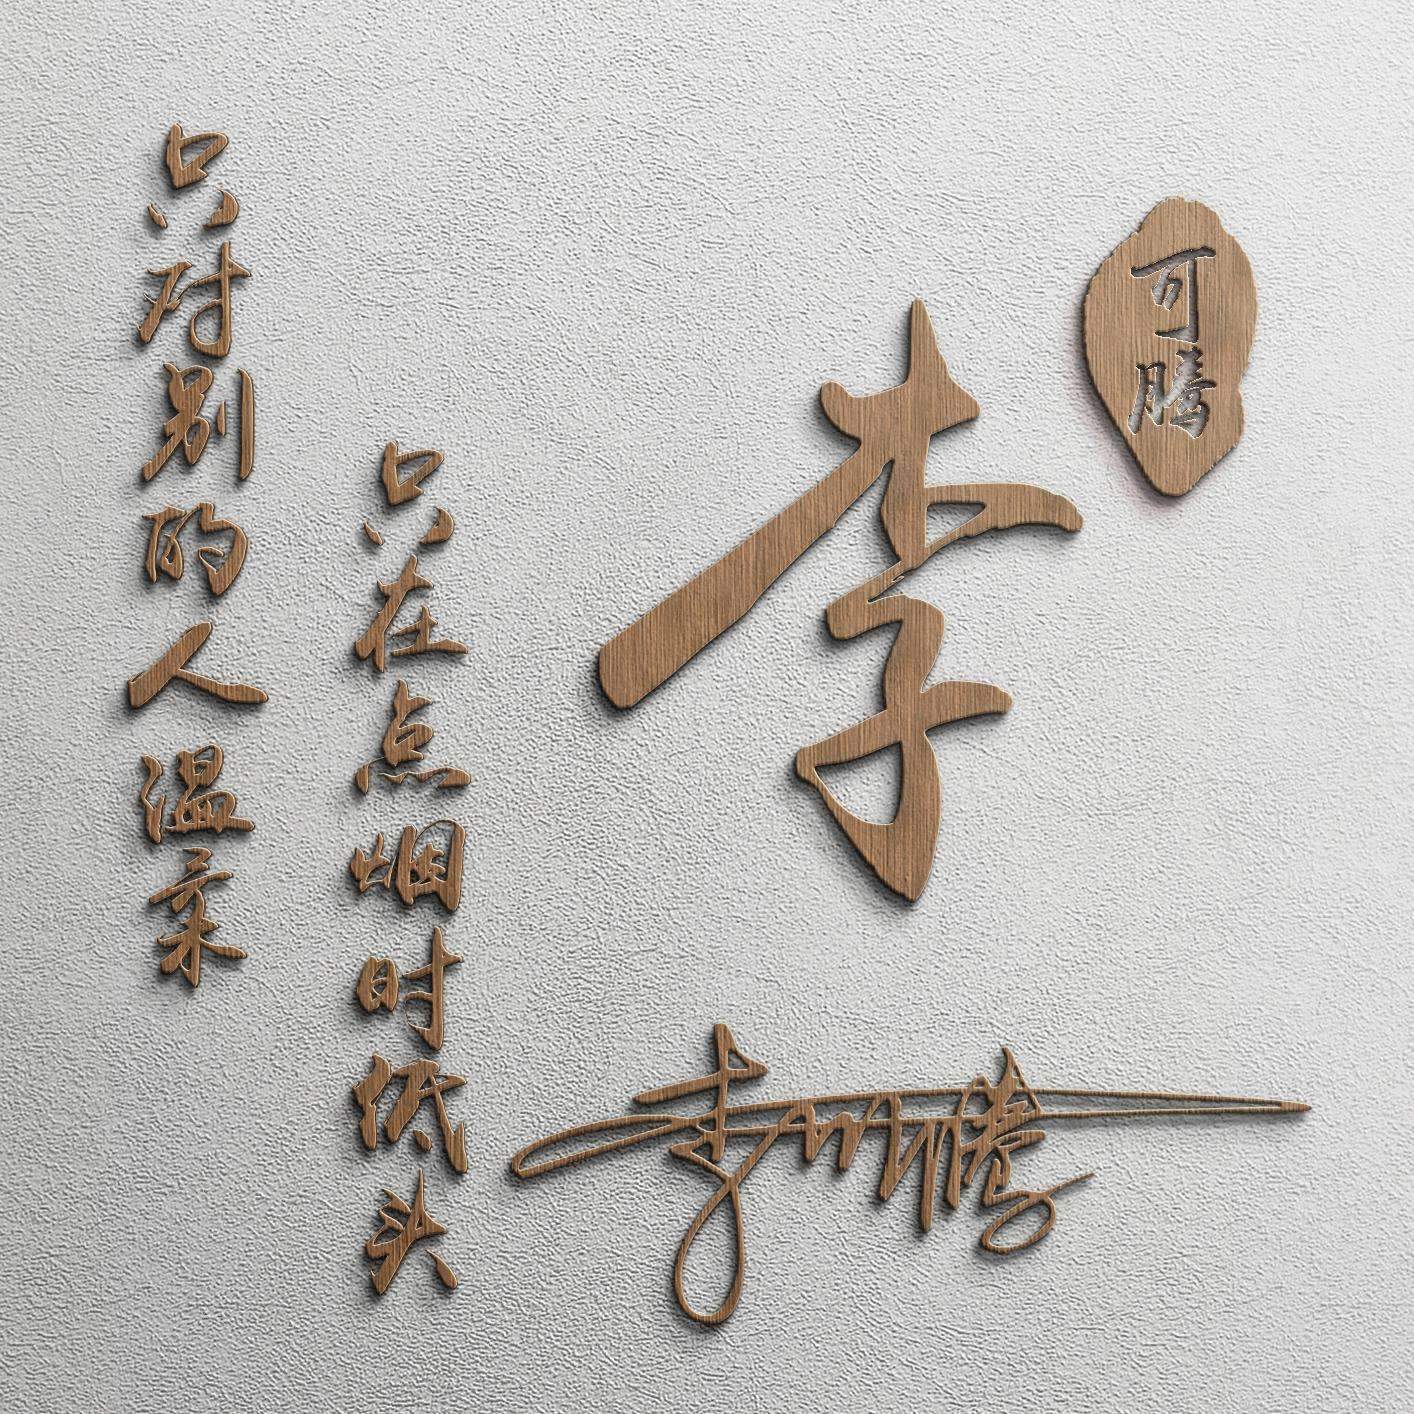 李
可腾
只在点烟时低头
只对别的人温柔
李可腾